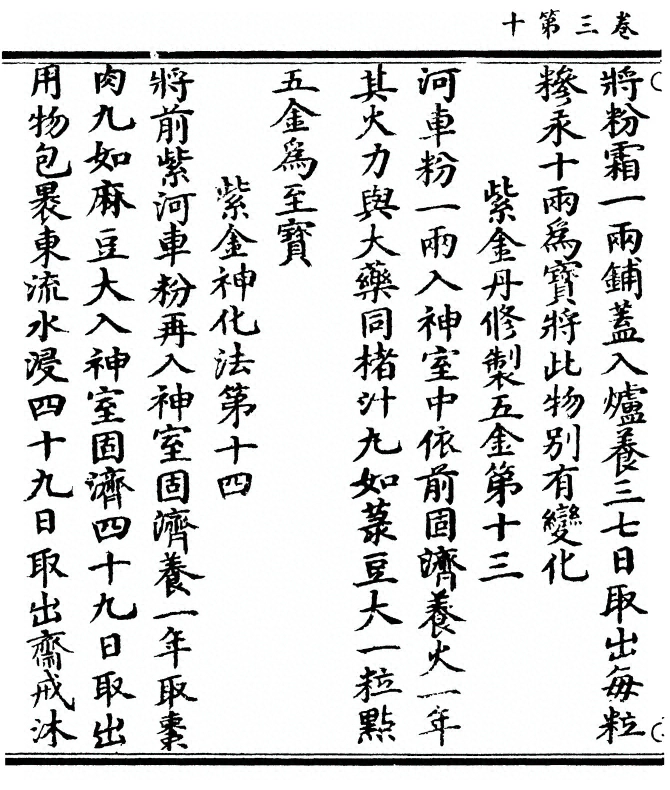 卷三第十
將粉霜一兩鋪蓋入爐養三七日取出每粒
糝汞十兩爲寳將此物别有變化
紫金丹修製五金第十三
河車粉一兩入神室中依前固濟養火一年
其火力與大藥同楮汁丸如菉豆大一粒點
五金爲至寳
紫金神化法第十四
將前紫河車粉再入神室固濟養一年取棗
肉丸如麻豆大入神室固濟四十九日取出
用物包褁東流水浸四十九日取出齋戒沐